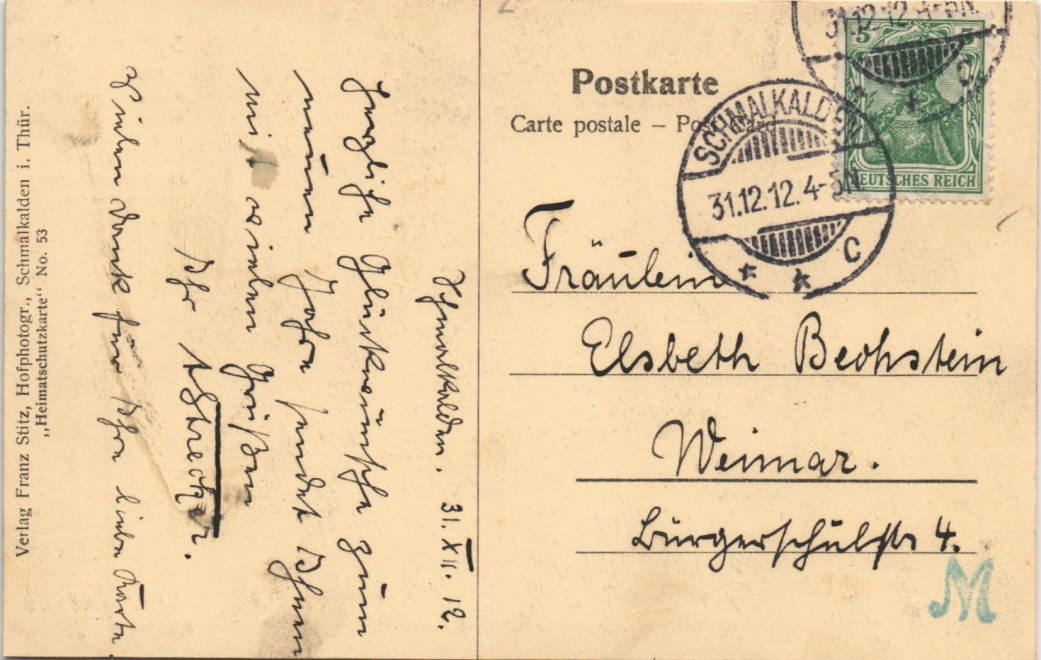 Verlag Franz Stitz, Hofphotogr., Schmalkalden i. Thür.
„Heimatschutzkarte“ No. 53
Schmalkalden. 31. XII. 12.
Herzliche Glückwünsche zum
neuen Jahre sendet Ihnen
mit vielen Grüßen
Ihr
Vielen Dank für Ihre liebe Karte.
Postkarte
Carte postale – Post card
Fräulein
Elsbeth Bechstein
Weimar.
Bürgerschulstr 4.
M
SCHMALKALDEN
31.12.12. 4-5N
C
31.12.12. 4-5N.
C
5
DEUTSCHES REICH